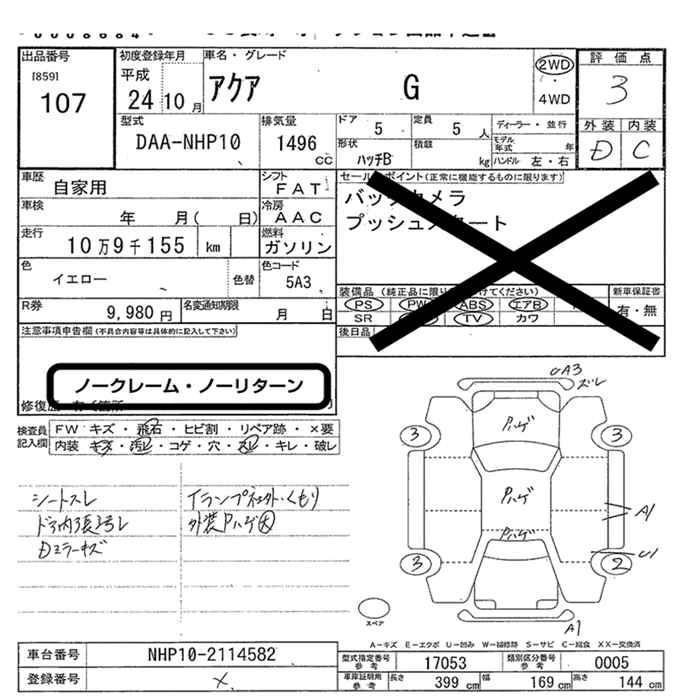 出品番号 初度登録年月 車名・グレード 評価点
[859]
107
平成
24 10月
アクア G
2WD
4WD
3
外装 内装
D C
型式 排気量 ドア 定員 ディーラー・並行
DAA-NHP10 1496 cc
5 5 人
モデル年式 年
形状 積載
ハッチB kg ハンドル 左・右
車歴 シフト セールスポイント(正常に機能するものに限ります)
自家用 FAT
バックカメラ
プッシュスタート
車検 冷房
年 月( 日) AAC
走行 燃料
10万9千155 km ガソリン
色 色替 色コード
イエロー 5A3
装備品 新車保証書
PS PW ABS エアB
SR TV カワ
有・無
R券 名変通知期限
9,980円 月 日
後日品
注意事項申告欄(不具合内容等は具体的に記入して下さい)
ノークレーム・ノーリターン
検査員記入欄
FW キズ・飛石・ヒビ割・リペア跡・×要
内装 キズ・汚レ・コゲ・穴・スレ・キレ・破レ
シートスレ
Dミラーキズ
外装Pハゲ大
A3
ズレ
Pハゲ
3 3
Pハゲ
A1
Pハゲ
U1
3 2
スペア
A1
A-キズ E-エクボ U-凹み W-補修跡 S-サビ C-腐食 XX-交換済
車台番号 NHP10-2114582
登録番号 ×
型式指定番号 参考 17053 類別区分番号 参考 0005
車庫証明用 参考 長さ 399 cm 幅 169 cm 高さ 144 cm